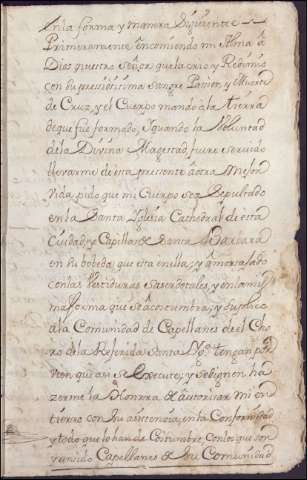 en la forma y manera Siguiente
Primeramente encomiendo mi Alma â
Dios nuestro Señor que la crio, y Redimio
con su preciosissima sangre Passion, y Muerte
de Cruz, y el Cuerpo mando â la tierra
de que fue formado, Y quando la Voluntad
de la Divina Magestad, fuere servido
llevarme de esta presente â otra Mejor
Vida, pido que mi Cuerpo sea Sepultado
en la Santa Yglesia Cathedral de esta
Ciudad, y Capilla de Santa Barbara
en su bobeda, que esta en ella, y amortajado
con las Vestiduras Saserdotales, y en la mis
ma forma que se acostumbra; y suplico
â la Comunidad de Capellanes de el Cho
ro de la Referida Santa Yga. tengan por
vien que asi se execute, y se dignen ha
zerme la Honrra de autorisar mi en
tierro con su asistencia, en la Conformidad
y todo que lo han de Costumbre, con los que son
y an sido Capellanes de su Comunidad